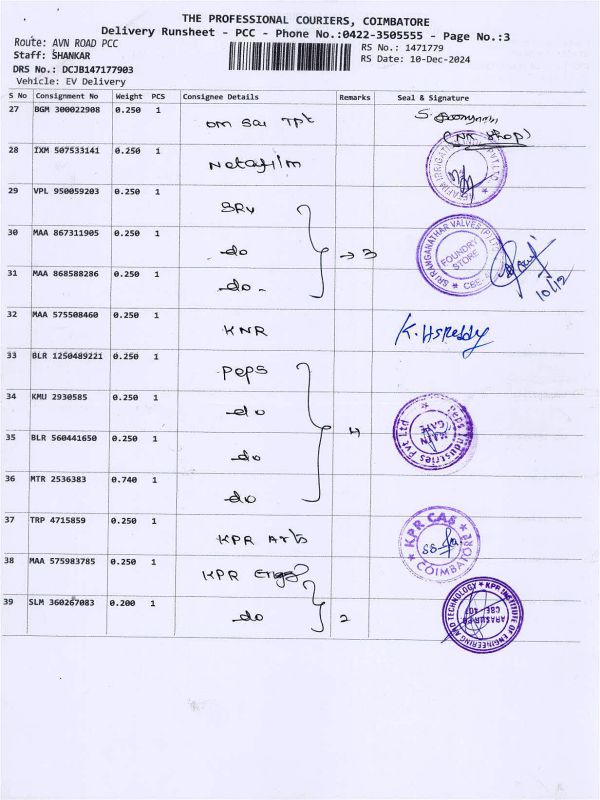 THE PROFESSIONAL COURIERS, COIMBATORE
Delivery Runsheet - PCC - Phone No.:0422-3505555 - Page No.:3
Route: AVN ROAD PCC
RS No.: 1471779
Staff: SHANKAR
RS Date: 10-Dec-2024
DRS No.: DCJB147177903
Vehicle: EV Delivery
S No Consignment No Weight PCS Consignee Details Remarks Seal & Signature
27 BGM 300022908 0.250 1 om sai Tpt
(NK shop)
28 IXM 507533141 0.250 1 Netafilm
29 VPL 950059203 0.250 1 SRV
30 MAA 867311905 0.250 1 do → 3
SRI RANGANATHAR VALVES (P) LTD
FOUNDRY STORE
CBE
31 MAA 868588286 0.250 1 do
10/12
32 MAA 575508460 0.250 1 KNR K. HSReddy
33 BLR 1250489221 0.250 1 Peps
34 KMU 2930585 0.250 1 do 4
Peps Industries Pvt Ltd
MAIN GATE
35 BLR 560441650 0.250 1 do
36 MTR 2536383 0.740 1 do
37 TRP 4715859 0.250 1 KPR Arts
KPR CAS
COIMBATORE
38 MAA 575983785 0.250 1 KPR Engg
39 SLM 360267083 0.200 1 do 2
KPR INSTITUTE OF ENGINEERING AND TECHNOLOGY
ARASUR PO
CBE 407